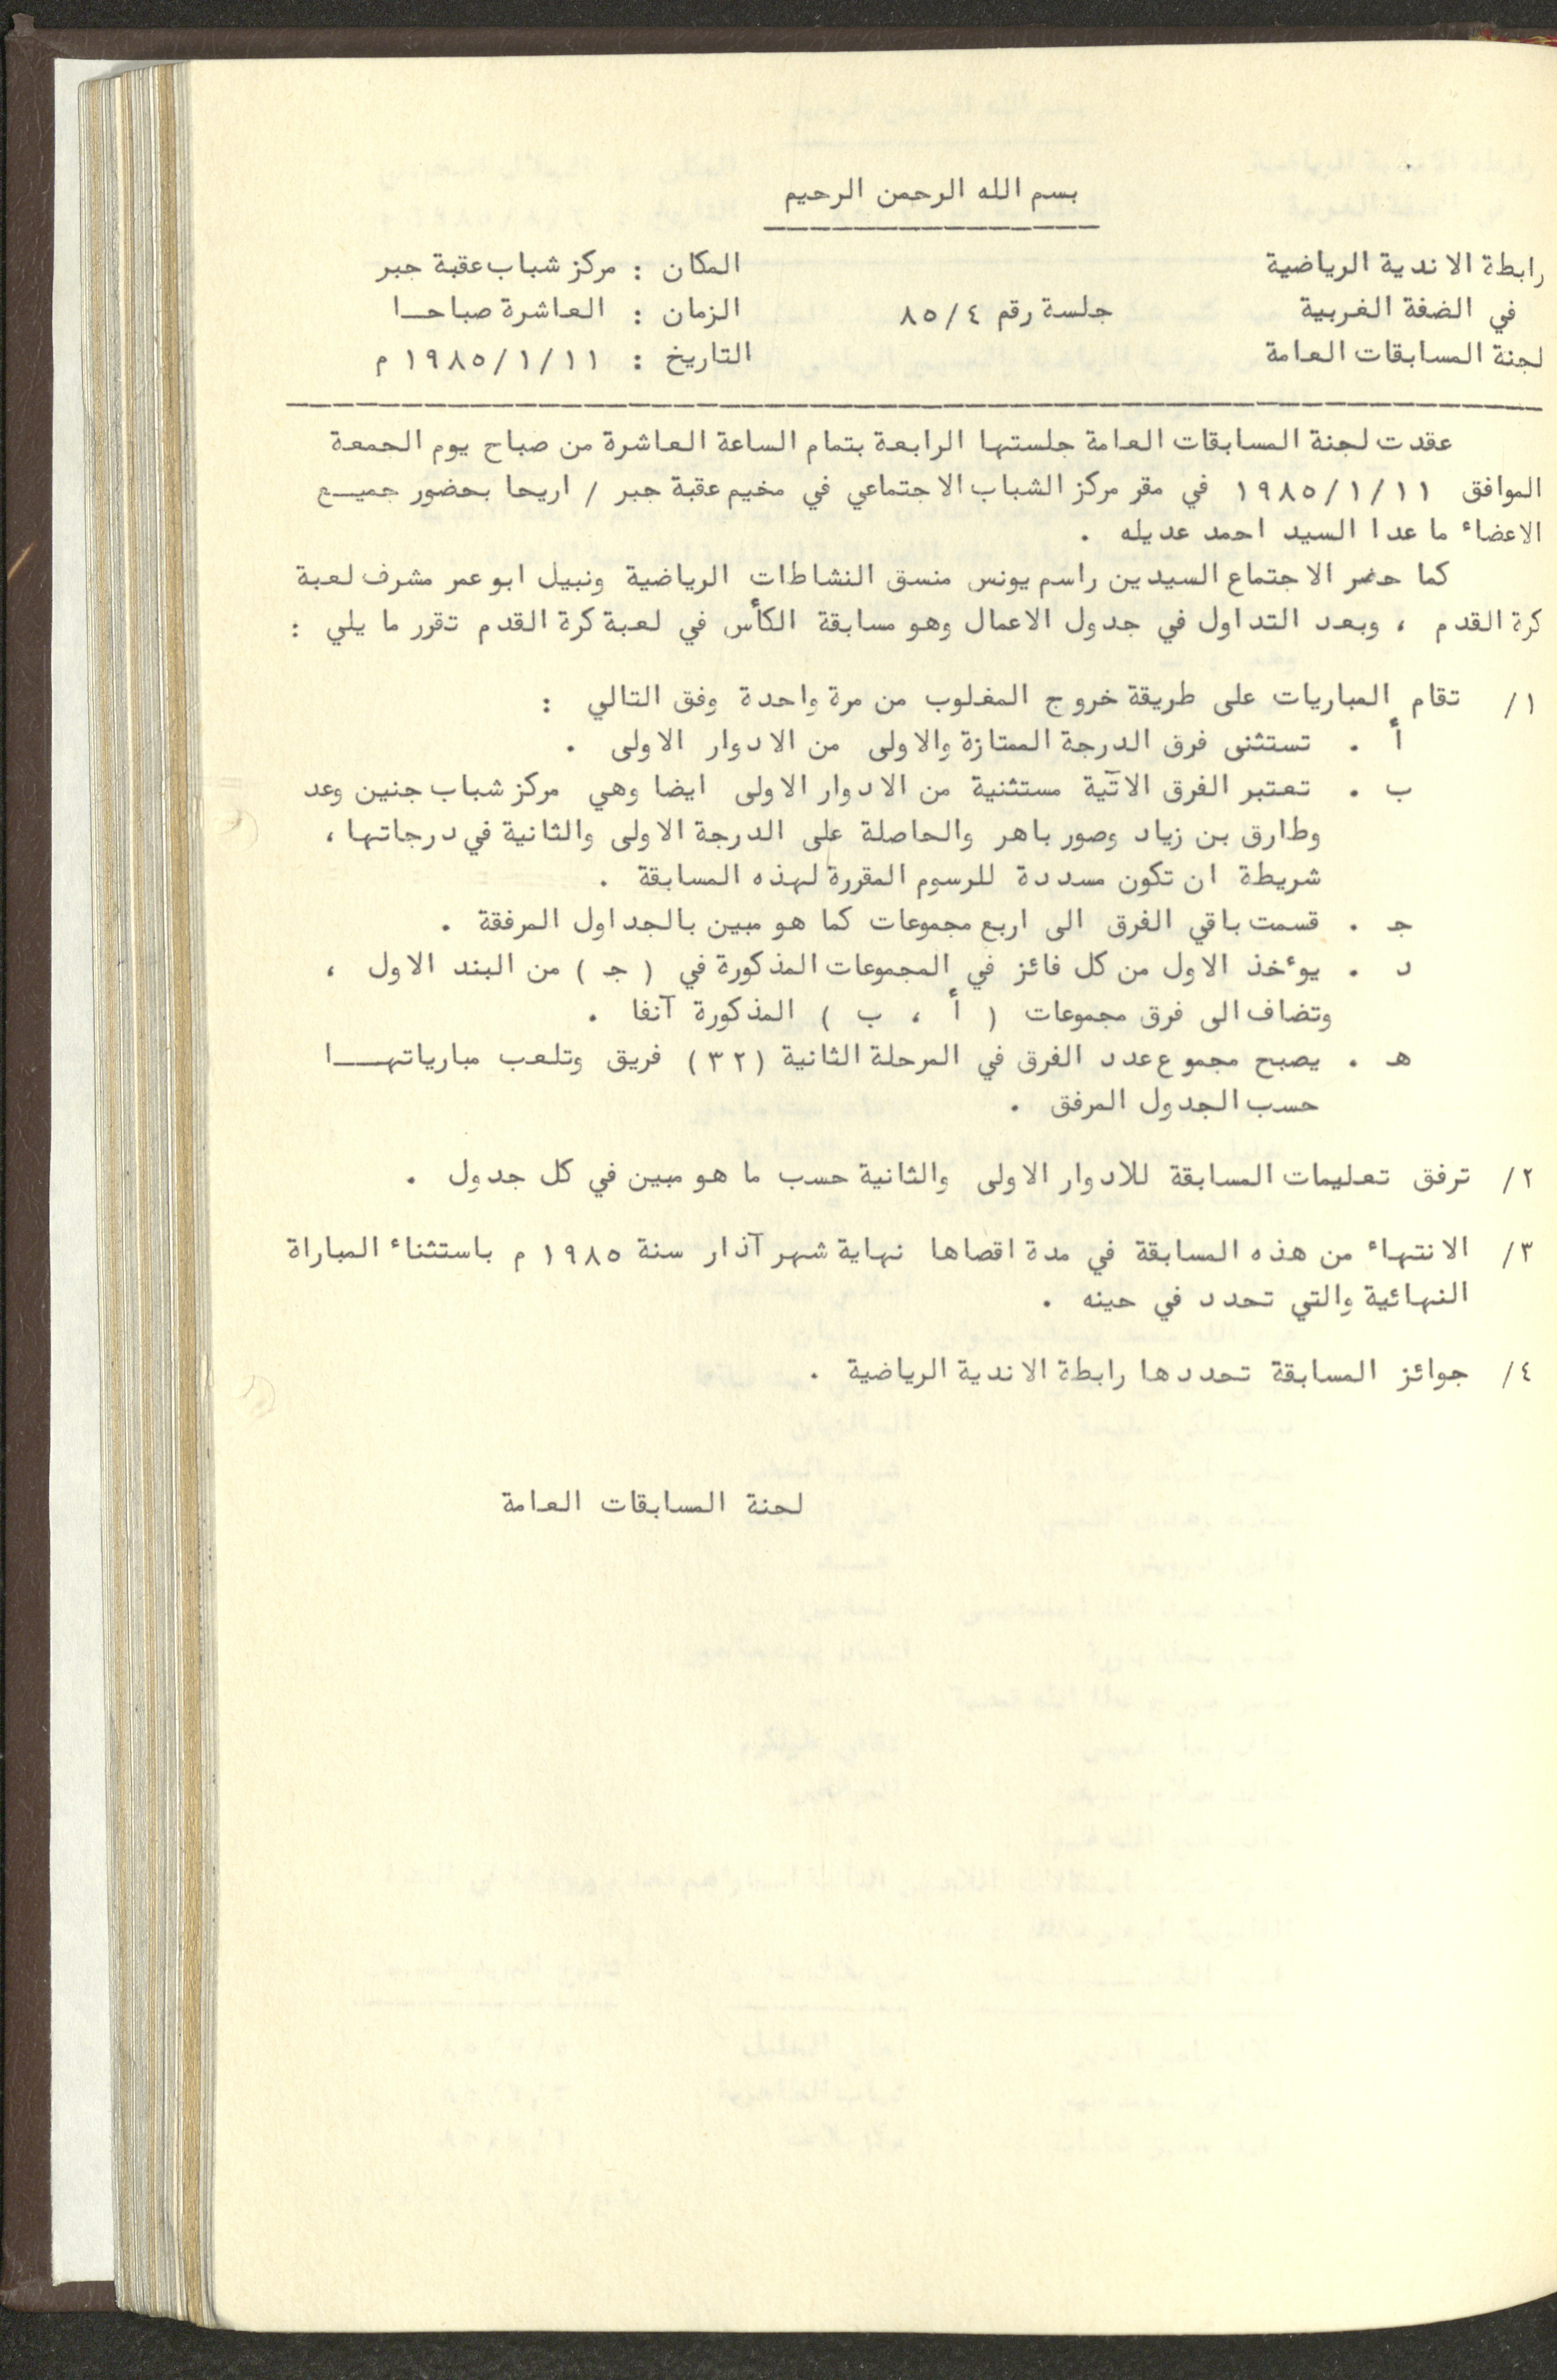 بسم الله الرحمن الرحيم
رابطة الاندية الرياضية المكان : مركز شباب عقبة جبر
في الضفة الغربية جلسة رقم ٨٥/٤ الزمان : العاشرة صباحـا
لجنة المسابقات العامة التاريخ : ١٩٨٥/١/١١ م
عقدت لجنة المسابقات العامة جلستها الرابعة بتمام الساعة العاشرة من صباح يوم الجمعة
الموافق ١٩٨٥/١/١١ في مقر مركز الشباب الاجتماعي في مخيم عقبة جبر / اريحا بحضور جميـع
الاعضاء ما عدا السيد احمد عديله .
كما حضر الاجتماع السيدين راسم يونس منسق النشاطات الرياضية ونبيل ابو عمر مشرف لعبة
كرة القدم ، وبعد التداول في جدول الاعمال وهو مسابقة الكأس في لعبة كرة القدم تقرر ما يلي :
١/ تقام المباريات على طريقة خروج المغلوب من مرة واحدة وفق التالي :
أ . تستثنى فرق الدرجة الممتازة والاولى من الادوار الاولى .
ب . تعتبر الفرق الآتية مستثنية من الادوار الاولى ايضا وهي مركز شباب جنين وعد
وطارق بن زياد وصور باهر والحاصلة على الدرجة الاولى والثانية في درجاتها ،
شريطة ان تكون مسددة للرسوم المقررة لهذه المسابقة .
جـ . قسمت باقي الفرق الى اربع مجموعات كما هو مبين بالجداول المرفقة .
د . يوءخذ الاول من كل فائز في المجموعات المذكورة في ( جـ ) من البند الاول ،
وتضاف الى فرق مجموعات ( أ ، ب ) المذكورة آنفا .
هـ . يصبح مجموع عدد الفرق في المرحلة الثانية (٣٢) فريق وتلعب مبارياتهـــا
حسب الجدول المرفق .
٢/ ترفق تعليمات المسابقة للادوار الاولى والثانية حسب ما هو مبين في كل جدول .
٣/ الانتهاء من هذه المسابقة في مدة اقصاها نهاية شهر آذار سنة ١٩٨٥ م باستثناء المباراة
النهائية والتي تحدد في حينه .
٤/ جوائز المسابقة تحددها رابطة الاندية الرياضية .
لجنة المسابقات العامة